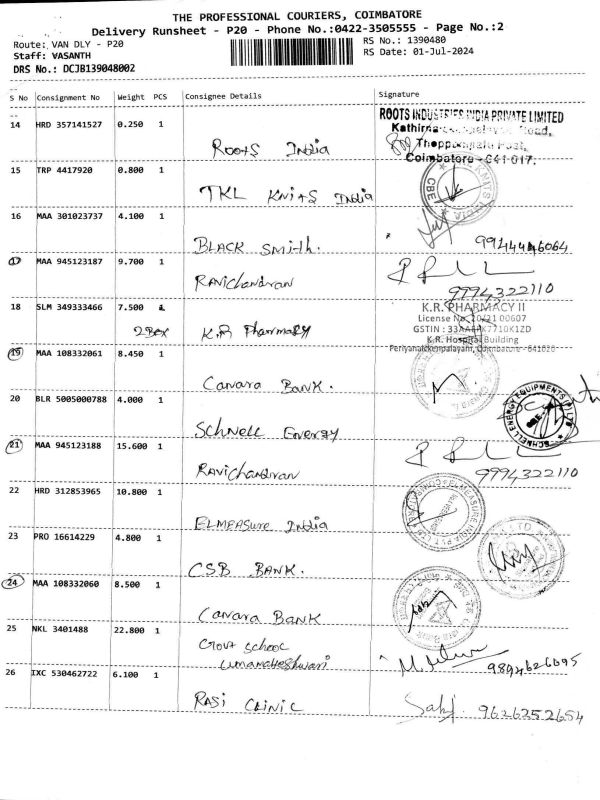 THE PROFESSIONAL COURIERS, COIMBATORE
Delivery Runsheet - P20 - Phone No.:0422-3505555 - Page No.:2
Route: VAN DLY - P20
RS No.: 1390480
Staff: VASANTH
RS Date: 01-Jul-2024
DRS No.: DCJB139048002
S No Consignment No Weight PCS Consignee Details Signature
14 HRD 357141527 0.250 1
ROOTS INDUSTRIES INDIA PRIVATE LIMITED
Road,
Thoppampatti Post,
Coimbatore - 641 017.
Roots India
15 TRP 4417920 0.800 1
TKL Knits India
16 MAA 301023737 4.100 1
BLACK Smith.
9944446064
17 MAA 945123187 9.700 1
Ravichandran
9994322110
18 SLM 349333466 7.500
2 Box K.R Pharmacy
K.R. PHARMACY II
License No. 20/21 00607
GSTIN : 7710K1ZD
K.R. Hospital Building
641020
19 MAA 108332061 8.450 1
Canara Bank.
20 BLR 5005000788 4.000 1
Schnell Energy
SCHNELL ENERGY EQUIPMENTS (P) LTD
21 MAA 945123188 15.600 1
Ravichandran
9994322110
22 HRD 312853965 10.800 1
ELMEASURE India
ELMEASURE INDIA PVT LTD
23 PRO 16614229 4.800 1
CSB BANK.
24 MAA 108332060 8.500 1
Canara Bank
25 NKL 3401488 22.800 1
Govt School
Umamaheshwari
9894626695
26 IXC 530462722 6.100 1
RASI CLINIC
9626252654